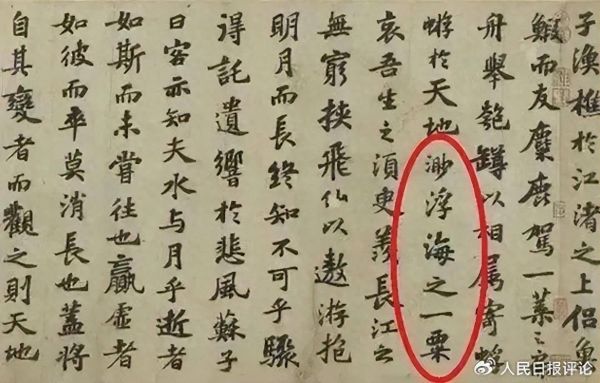 子漁樵於江渚之上侶魚
鰕而友麋鹿駕一葉之扁
舟舉匏罇以相屬寄蜉
蝣於天地渺浮海之一粟
哀吾生之須臾羨長江之
無窮挾飛仙以遨游抱
明月而長終知不可乎驟
得託遺響於悲風蘇子
曰客亦知夫水與月乎逝者
如斯而未嘗往也贏虛者
如彼而卒莫消長也蓋將
自其變者而觀之則天地
人民日报评论